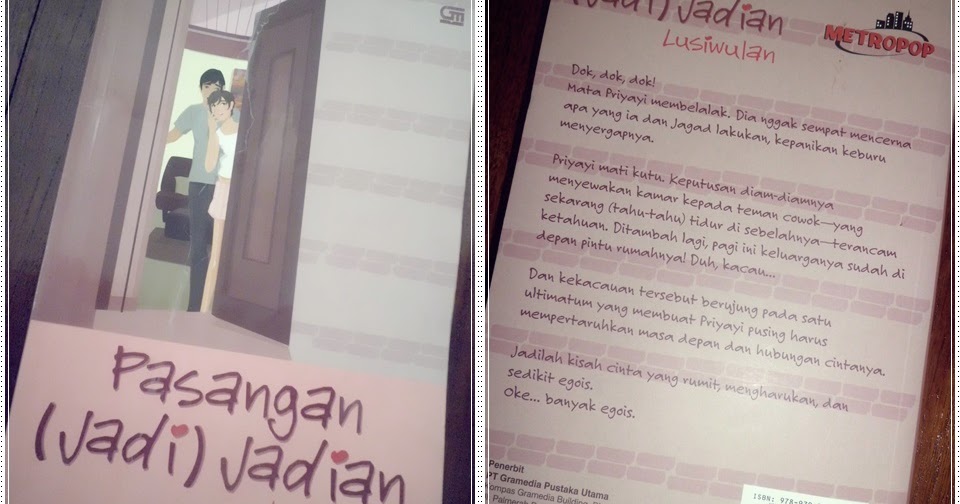 GM
Pasangan
(Jadi) Jadian
(Jadi) Jadian
Lusiwulan
METROPOP
Dok, dok, dok!
Mata Priyayi membelalak. Dia nggak sempat mencerna
apa yang ia dan Jagad lakukan, kepanikan keburu
menyergapnya.
Priyayi mati kutu. Keputusan diam-diamnya
menyewakan kamar kepada teman cowok—yang
sekarang (tahu-tahu) tidur di sebelahnya—terancam
ketahuan. Ditambah lagi, pagi ini keluarganya sudah di
depan pintu rumahnya! Duh, kacau...
Dan kekacauan tersebut berujung pada satu
ultimatum yang membuat Priyayi pusing harus
mempertaruhkan masa depan dan hubungan cintanya.
Jadilah kisah cinta yang rumit, mengharukan, dan
sedikit egois.
Oke... banyak egois.
Penerbit
PT Gramedia Pustaka Utama
Kompas Gramedia Building,
Palmerah
ISBN: 978-979